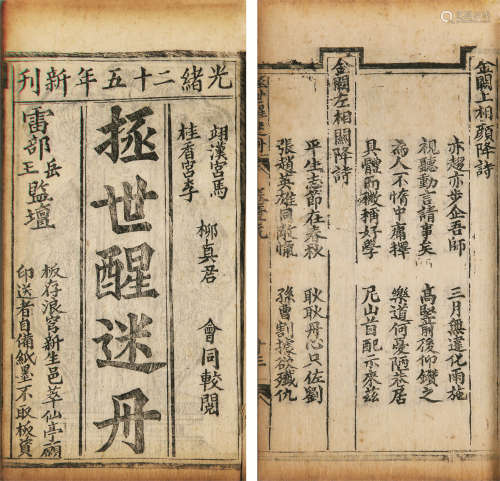 光緒二十五年新刊
翊漢宮馬
桂香宮李
柳真君
會同較閱
拯世醒迷丹
雷部岳王監壇
板存浪宮新生邑萃仙亭廟
印送者自備紙墨不取板資
金闕上相顏降詩
亦超亦步企吾師
三月無違化雨施
視聽動言請事矣
高堅前後仰鑽之
兩人不惰中庸擇
樂道何憂陋巷居
具體而微稱好學
尼山首配示來茲
金闕左相關降詩
平生志節在春秋
耿耿丹心只佐劉
張趙英雄同敵愾
孫曹割據欲殲仇